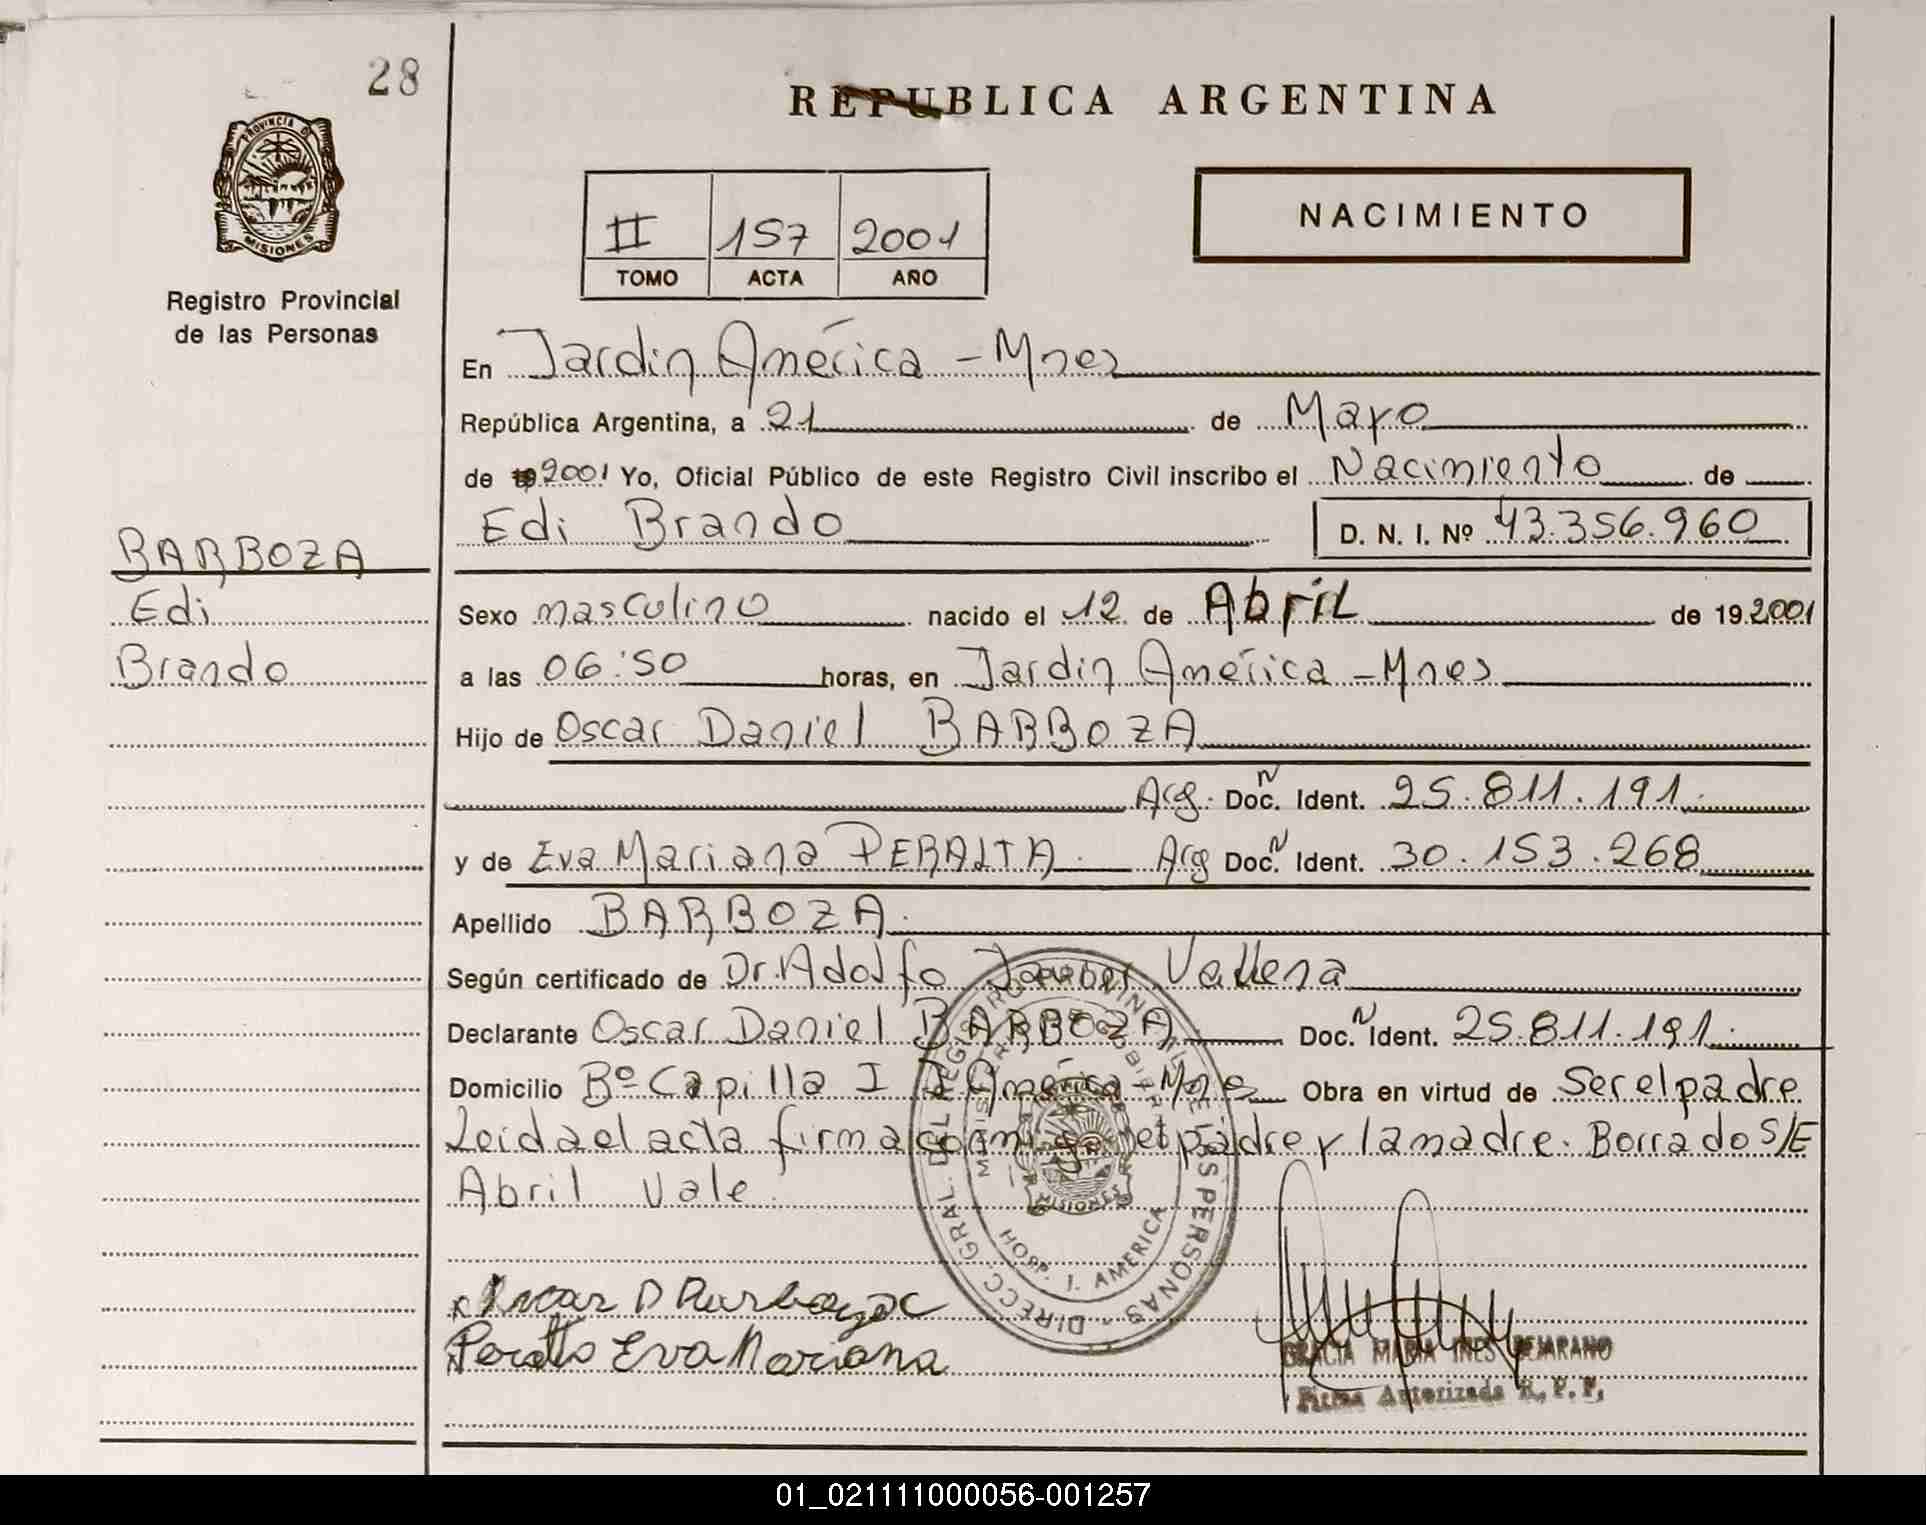 28
REPUBLICA ARGENTINA
PROVINCIA DE
MISIONES
Registro Provincial
de las Personas
II 157 2001
TOMO ACTA AÑO
NACIMIENTO
En Jardin América - Mnes
República Argentina, a 21 de Mayo
de 2001 Yo, Oficial Público de este Registro Civil inscribo el Nacimiento de
Edi Brando D. N. I. Nº 43.356.960
BARBOZA
Edi
Brando
Sexo masculino nacido el 12 de Abril de 19 2001
a las 06:50 horas, en Jardin América - Mnes
Hijo de Oscar Daniel BARBOZA
Arg. Doc. N Ident. 25.811.191.
y de Eva Mariana PERALTA. Arg Doc. N Ident. 30.153.268
Apellido BARBOZA.
Según certificado de Dr. Adolfo Vallena
Declarante Oscar Daniel BARBOZA Doc. N Ident. 25.811.191.
Domicilio Bº Capilla I J. América - Mnes Obra en virtud de Ser el padre
Leida el acta firma conmigo el padre y la madre. Borrado S/E
Abril Vale
DIRECC. GRAL. DEL REGISTRO PROVINCIAL DE LAS PERSONAS -
MINISTERIO DE GOBIERNO
MISIONES
HOSP. J. AMERICA
Oscar D Barboza
Peralta Eva Mariana
GRACIA MARIA INES BEJARANO
Firma Autorizada R. P. P.
01_021111000056-001257